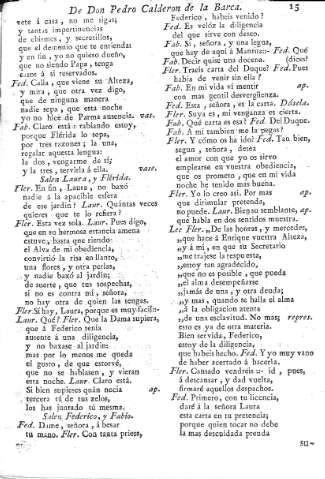 De Don Pedro Calderon de la Barca. 15
vete á casa, no me sigas;
y tantas impertinencias
de chismes, y secretillos,
que el demonio que te entiendas
y en fin, yo no quiero dueño,
que no siendo Papa, tenga
casos á sí reservados.
Fed. Calla, que viene su Alteza,
y mira, que otra vez digo,
que de ninguna manera
nadie sepa, que esta noche
yo no hice de Parma ausencia. vas.
Fab. Claro está: rabiando estoy,
porque Flérida lo sepa,
por tres razones; la una,
regalar aquesta lengua:
la dos, vengarme de tí;
y la tres, servirla á ella. vase.
Salen Laura, y Flérida.
Fler. En fin, Laura, no baxó
nadie á la apacible esfera
de ese jardin? Laur. Quántas veces
quieres que te lo refiera?
Fler. Esta vez sola. Laur. Pues digo,
que en no hermosa estancia amena
estuve, hasta que siendo
el Alva de mi obediencia,
convirtió la risa en llanto,
una flores, y otra perlas,
y nadie baxó al jardin;
de suerte, que tus sospechas,
si no es contra mí, señora,
no hay otra de quien las tengas.
Fler. Sí hay, Laura, porque es muy facil
Laur. Qué? Fler. Que la Dama supiera,
que á Federico tenia
ausente á una diligencia,
y no baxase al jardin:
mas por lo menos me queda
el gusto, de que estorvé,
que no se hablasen, y vieran
esta noche. Laur. Claro está.
Si bien supieres quán necia ap.
tercera tú de tus zelos,
los has juntado tú mesma.
Salen Federico, y Fabio.
Fed. Dame, señora, á besar
tu mano. Fler. Con tanta priesa,
Federico, habeis venido?
Fed. Es velóz la diligencia
del que sirve con deseo.
Fab. Sí, señora, y una legua,
que hay de aquí á Mantua-- Fed. Qué
Fab. Decir quise una docena. (dices?
Fler. Traeis carta del Duque? Fed. Pues
habia de venir sin ella?
Fab. En mi vida ví mentir ap.
con mas gentil desvergüenza.
Fed. Esta, señora, es la carta. Dásela.
Fler. Suya es, mi venganza es cierta.
Fab. Qué carta es esa? Fed. Del Duque.
Fab. A mí tambien me la pegas?
Fler. Y cómo os ha ido? Fed. Tan bien,
segun, señora, deteo
el amor con que yo os sirvo
emplearse en vuestra obediencia,
que os prometo, que en mi vida
noche he tenido mas buena.
Fler. Yo lo creo así. Por mas ap.
que disimular pretenda,
no puede. Laur. Bien su semblante, ap.
que habla en dos sentidos muestra.
Lee Fler. „De las honras, y mercedes,
„que hace á Enrique vuestra Alteza,
„y á mí, en que su Secretario
„me traxese la respuesta,
„estoy tan agradecido,
„que no es posible, que pueda
„el alma desempeñarse
„jamás de una, y otra deuda;
„y mas, quando se halla el alma
„á la obligacion atenta
„de una esclavitud. No mas; repres.
esto es ya de otra materia.
Bien servida, Federico,
estoy de la diligencia,
que habeis hecho. Fed. Y yo muy vano
de haber acertado á hacerla.
Fler. Cansado vendreis: id, pues,
á descansar, y dad vuelta,
firmaré aquellos despachos.
Fed. Primero, con tu licencia,
daré á la señora Laura
esta carta en tu presencia;
porque quien tocar no debe
la mas descuidada prenda
su-